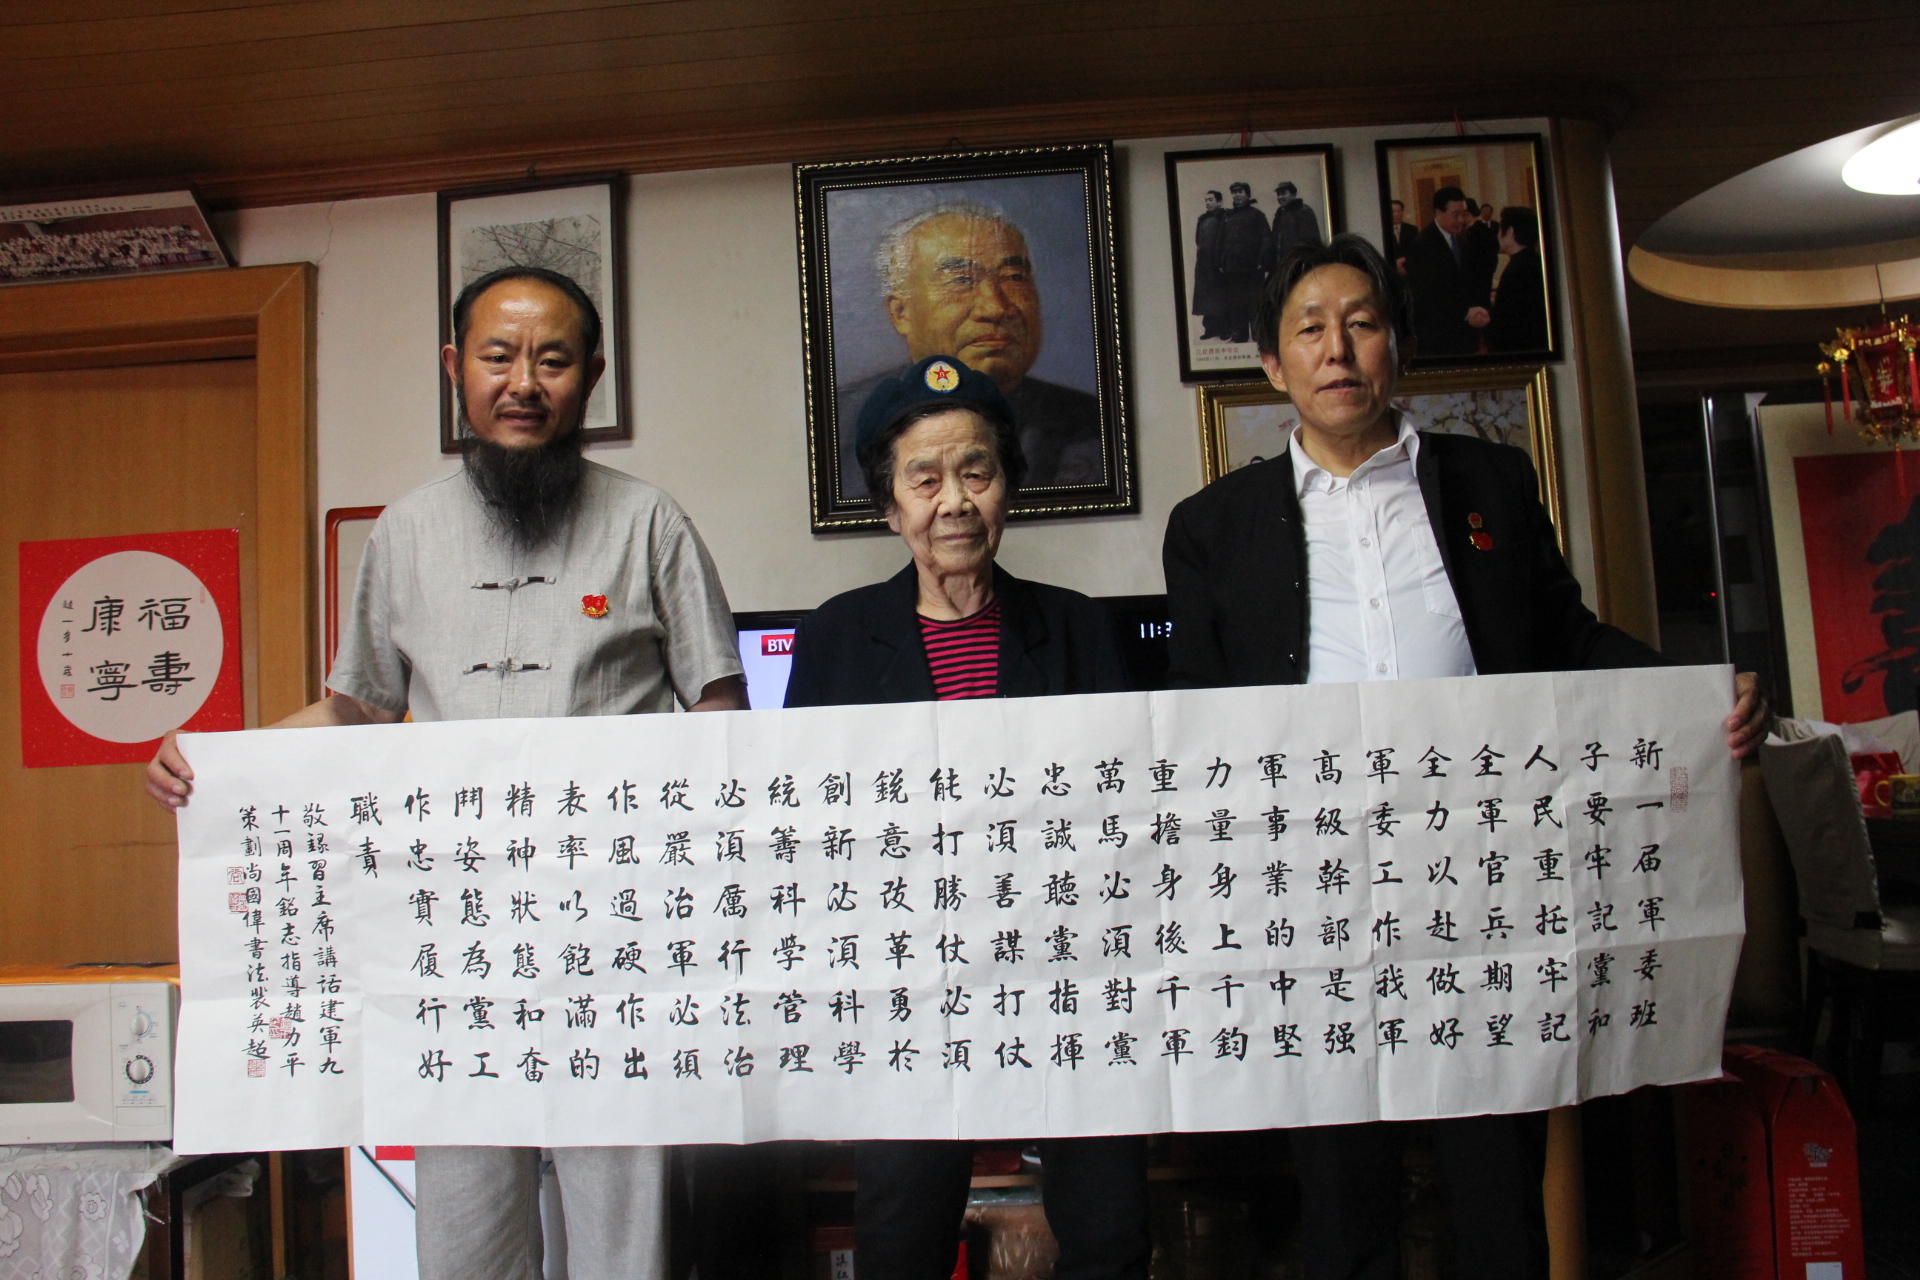 新一届軍委班
子要牢記黨和
人民重托牢記
全軍官兵期望
全力以赴做好
軍委工作我軍
高級幹部是强
軍事業的中堅
力量身上千鈞
重擔身後千軍
萬馬必須對黨
忠誠聽黨指揮
必須善謀打仗
能打勝仗必須
銳意改革勇於
創新必須科學
統籌科學管理
必須厲行法治
從嚴治軍必須
作風過硬作出
表率以飽滿的
精神狀態和奮
鬥姿態為黨工
作忠實履行好
職責
敬録習主席講話建軍九
十一周年銘志指導趙力平
策劃尚國偉書法裴英超
福壽
康寧
BTV
11:3